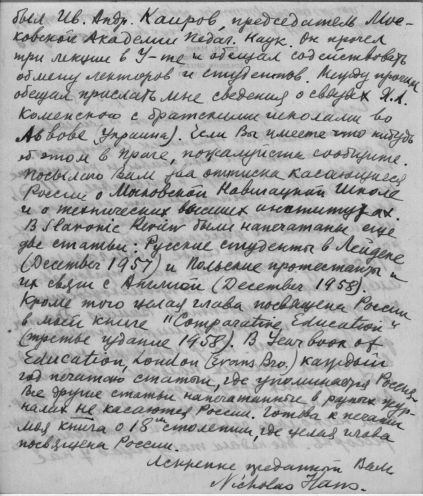 был Ив. Андр. Каиров, председатель Мос-
ковской Академии Педаг. Наук. Он прочел
три лекции в У-те и обещал содействовать
обмену лекторов и студентов. Между прочим
обещал прислать мне сведения о связях Я.А.
Коменского с братскими школами во
Львове (Украина). Если Вы имеете что нибудь
об этом в Праге, пожалуйста сообщите.
Посылаю Вам два оттиска касающиеся
России о Московской Навигацкой Школе
и о технических высших институтах.
В Slavonic Review были напечатаны еще
две статьи: Русские студенты в Лейдене
(December 1957) и Польские протестанты и
их связи с Англией (December 1958).
Кроме того целая глава посвящена России
в моей книге "Comparative Education"
(третье издание 1958). В Yearbook of
Education, London (Evans Bro.) каждый
год печатаю статьи, где упоминается Россия.
Все другие статьи напечатанные в разных жур-
налах не касаются России. Готова к печати
моя книга о 18ом столетии, где целая глава
посвящена России.
Искренне преданный Вам
Nicholas Hans.